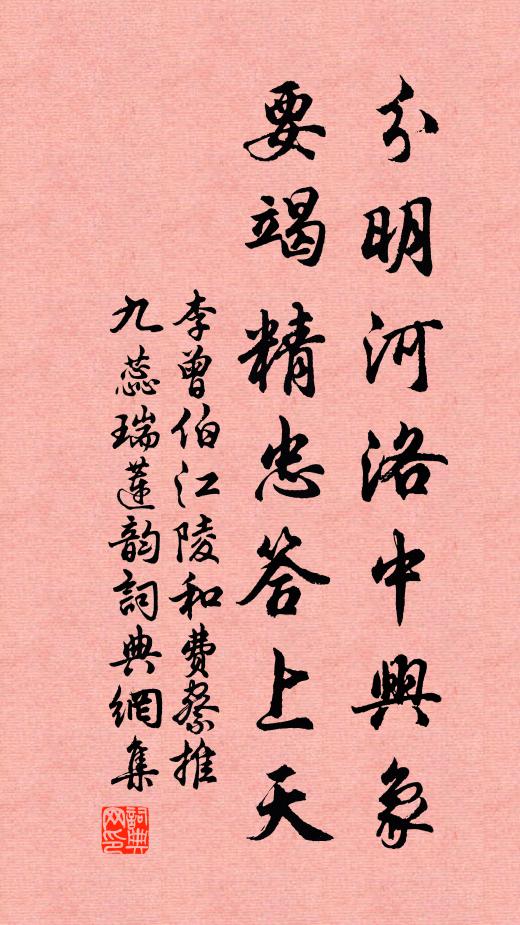 分明河洛中興象
要竭精忠答上天
李曾伯江陵和費察推
九蕊瑞蓮韵詞典網集
詞典网印